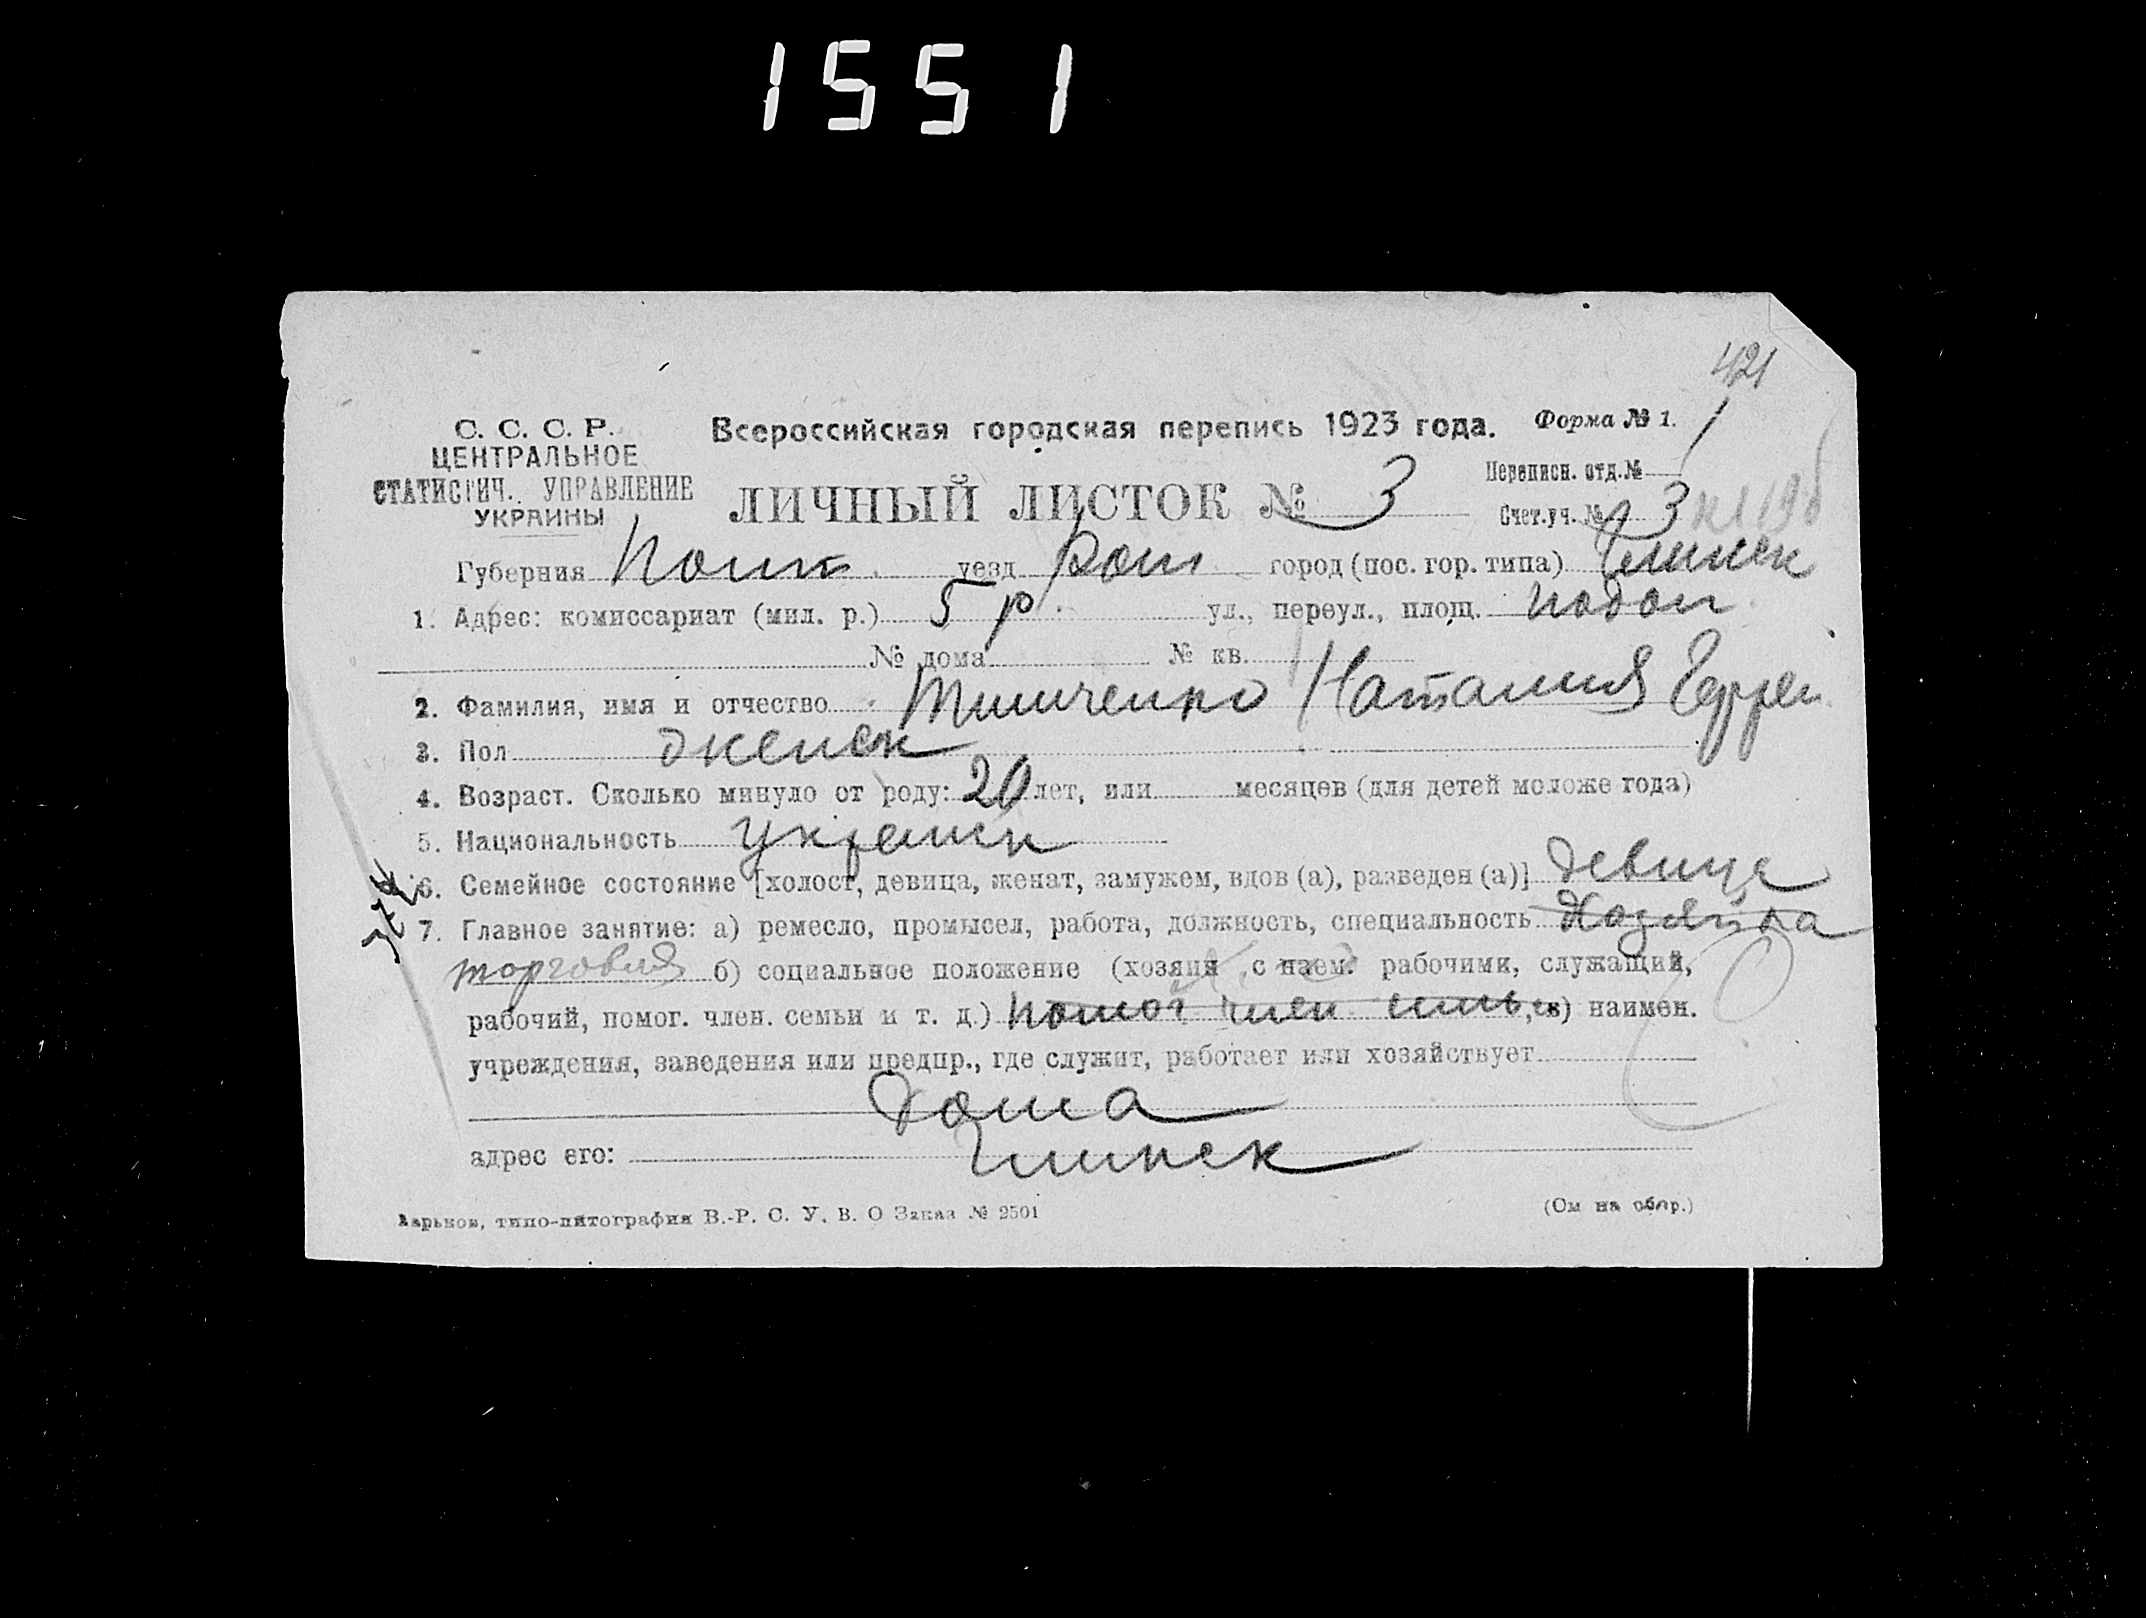 1551
421
С. С. С. Р.
ЦЕНТРАЛЬНОЕ
СТАТИСТИЧ. УПРАВЛЕНИЕ
УКРАИНЫ
Всероссийская городская перепись 1923 года. Форма № 1.
Переписн. отд. № 1
ЛИЧНЫЙ ЛИСТОК № 3
Счет. уч. № 3
Губерния Полт. уезд Ром город (пос. гор. типа) Глинск
1. Адрес: комиссариат (мил. р.) 5 р. ул., переул., площ. Подол
№ дома № кв.
2. Фамилия, имя и отчество Тимченко Наталия
3. Пол женск
4. Возраст. Сколько минуло от роду: 20 лет, или месяцев (для детей моложе года)
5. Национальность Украинк
6. Семейное состояние [холост, девица, женат, замужем, вдов (а), разведен (а)] девица
7. Главное занятие: а) ремесло, промысел, работа, должность, специальность Хозяйка
торговля б) социальное положение (хозяин с наем. рабочими, служащий,
рабочий, помог. член. семьи и т. д.) помог член семь, в) наимен.
учреждения, заведения или предпр., где служит, работает или хозяйствует
Дома
адрес его: Глинск
Харьков, типо-литография В.-Р. С. У. В. О Заказ № 2501
(См на обор.)